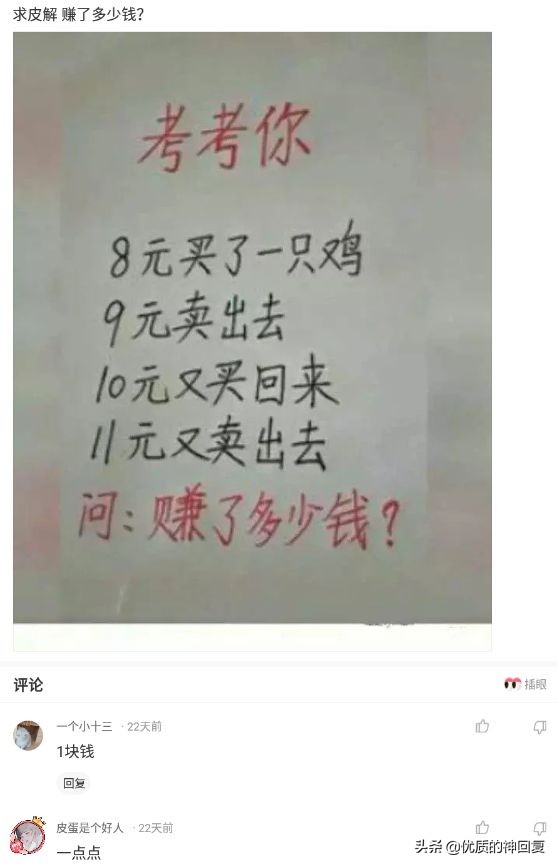 求皮解 赚了多少钱?
考考你
8元买了一只鸡
9元卖出去
10元又买回来
11元又卖出去
问:赚了多少钱?
评论
插眼
一个小十三 ·22天前
1块钱
回复
皮蛋是个好人 ·22天前
一点点
头条 @优质的神回复